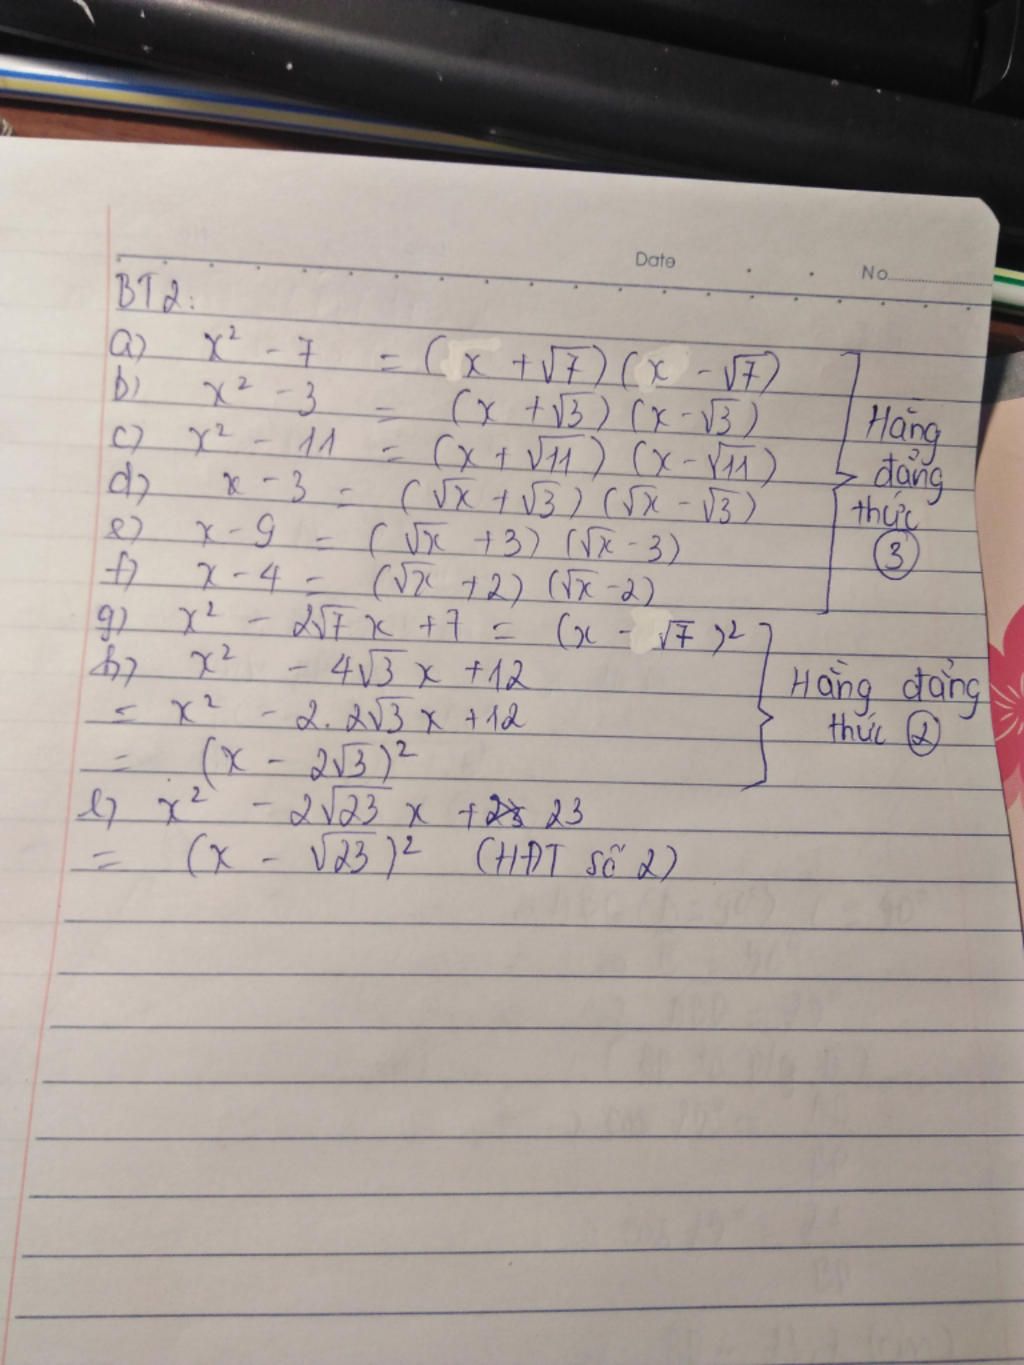 Date No
BT2:
a) x² - 7 = (x + √7) (x - √7)
b) x² - 3 = (x + √3) (x - √3)
c) x² - 11 = (x + √11) (x - √11)
d) x - 3 = (√x + √3) (√x - √3)
e) x - 9 = (√x + 3) (√x - 3)
f) x - 4 = (√x + 2) (√x - 2)
Hằng
đẳng
thức
③
g) x² - 2√7 x + 7 = (x - √7)²
h) x² - 4√3 x + 12
= x² - 2. 2√3 x + 12
= (x - 2√3)²
Hằng đẳng
thức ②
l) x² - 2√23 x + 23
= (x - √23)² (HĐT số 2)